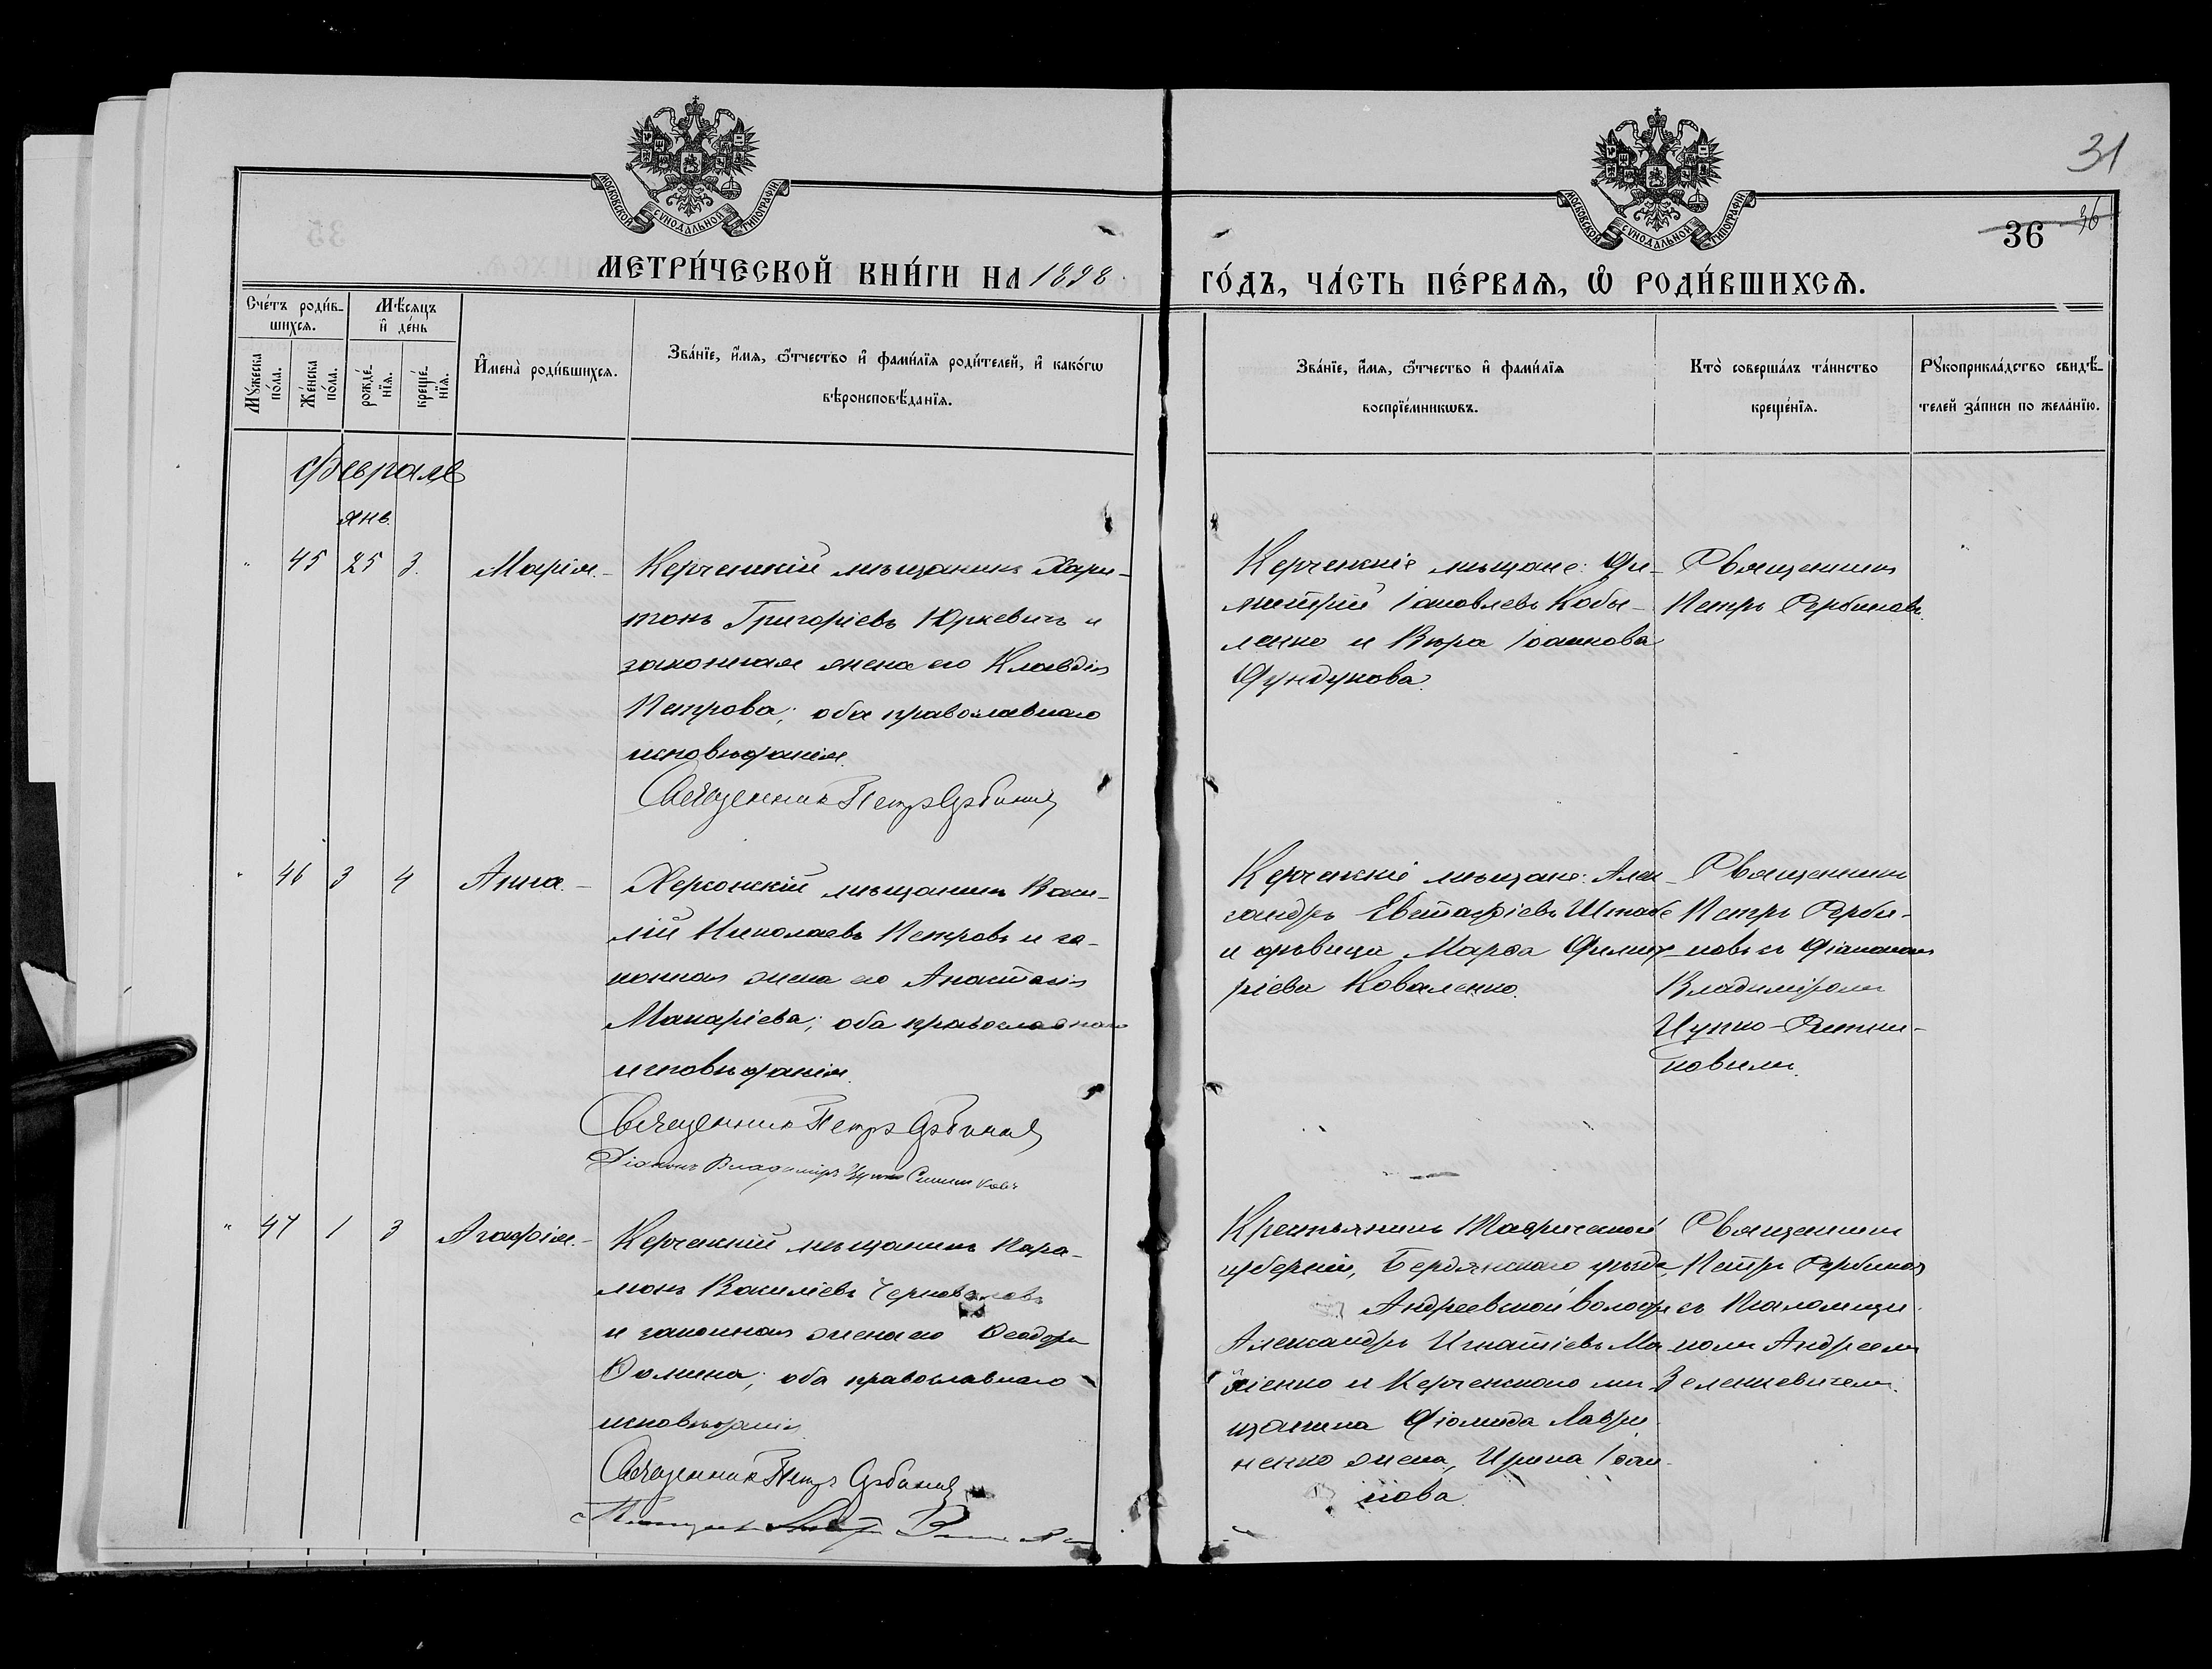 31
МОСКОВСКОЙ СѴНОДАЛЬНОЙ ТИПОГРАФІИ
МОСКОВСКОЙ СѴНОДАЛЬНОЙ ТИПОГРАФІИ
36 36
МЕТРИ́ЧЕСКОЙ КНИ́ГИ НА 1898
ГО́ДЪ, ЧА́СТЬ ПЕ́РВАѦ, Ѡ҆ РОДИ́ВШИХСѦ.
Сче́тъ роди́в-
шихсѧ.
Мꙋ́жеска по́ла.
Же́нска по́ла.
Мѣ́сѧцъ
и҆ де́нь
рожде́-нїѧ.
креще́-нїѧ.
И҆мена̀ роди́вшихсѧ.
Зва́нїе, и҆́мѧ, ѻ҆́тчество и҆ фами́лїѧ роди́телей, и҆ како́гѡ
вѣроисповѣ́данїѧ.
Зва́нїе, и҆́мѧ, ѻ҆́тчество и҆ фами́лїѧ
воспрїе́мникѡвъ.
Кто̀ соверша́лъ та́инство
креще́нїѧ.
Рꙋкоприкла́дство свидѣ́-
телей за́писи по жела́нїю.
Февраль
янв.
" 45 25 3. Марія.-
Керченскій мѣщанинъ Хари-
тонъ Григоріевъ Юркевичъ и
законная жена его Клавдія
Петрова; оба православнаго
исповѣданія.
Священникъ Петръ Сербиновъ
Керченскіе мѣщане: Ди-
митрій Іаковлевъ Кобы-
ленко и Вѣра Іоаннова
Фундукова.
Священникъ
Петръ Сербиновъ.
" 46 3 4 Анна.-
Херсонскій мѣщанинъ Васи-
лій Николаевъ Петровъ и за-
конная жена его Анастасія
Макаріева; оба православнаго
исповѣданія.
Священникъ Петръ Сербиновъ
Діаконъ Владиміръ Цупко-Ситниковъ
Керченскіе мѣщане: Алек-
сандръ Евстафіевъ Штабе
и дѣвица Марѳа Димит-
ріева Коваленко.
Священникъ
Петръ Серби-
новъ съ діакономъ
Владиміромъ
Цупко-Ситни-
ковымъ.
" 47 1 3 Агафія.-
Керченскій мѣщанинъ Пара-
монъ Василіевъ
и законная жена его Ѳеодора
Ѳомина; оба православнаго
исповѣданія.
Священникъ Петръ Сербиновъ
Крестьянинъ Таврической
губерніи, Бердянскаго уѣзда,
Андреевской волости
Александръ Игнатіевъ
и Керченскаго мѣ-
щанина Діомида Лаври-
ненко жена, Ирина Іоан-
нова.
Священникъ
Петръ Сербиновъ
съ Псаломщи-
комъ Андреемъ
Зеленкевичемъ.